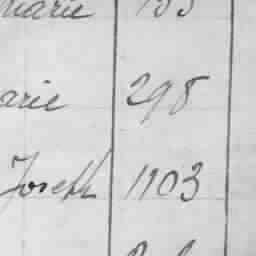 marie 133
arie 298
Joseth 1103